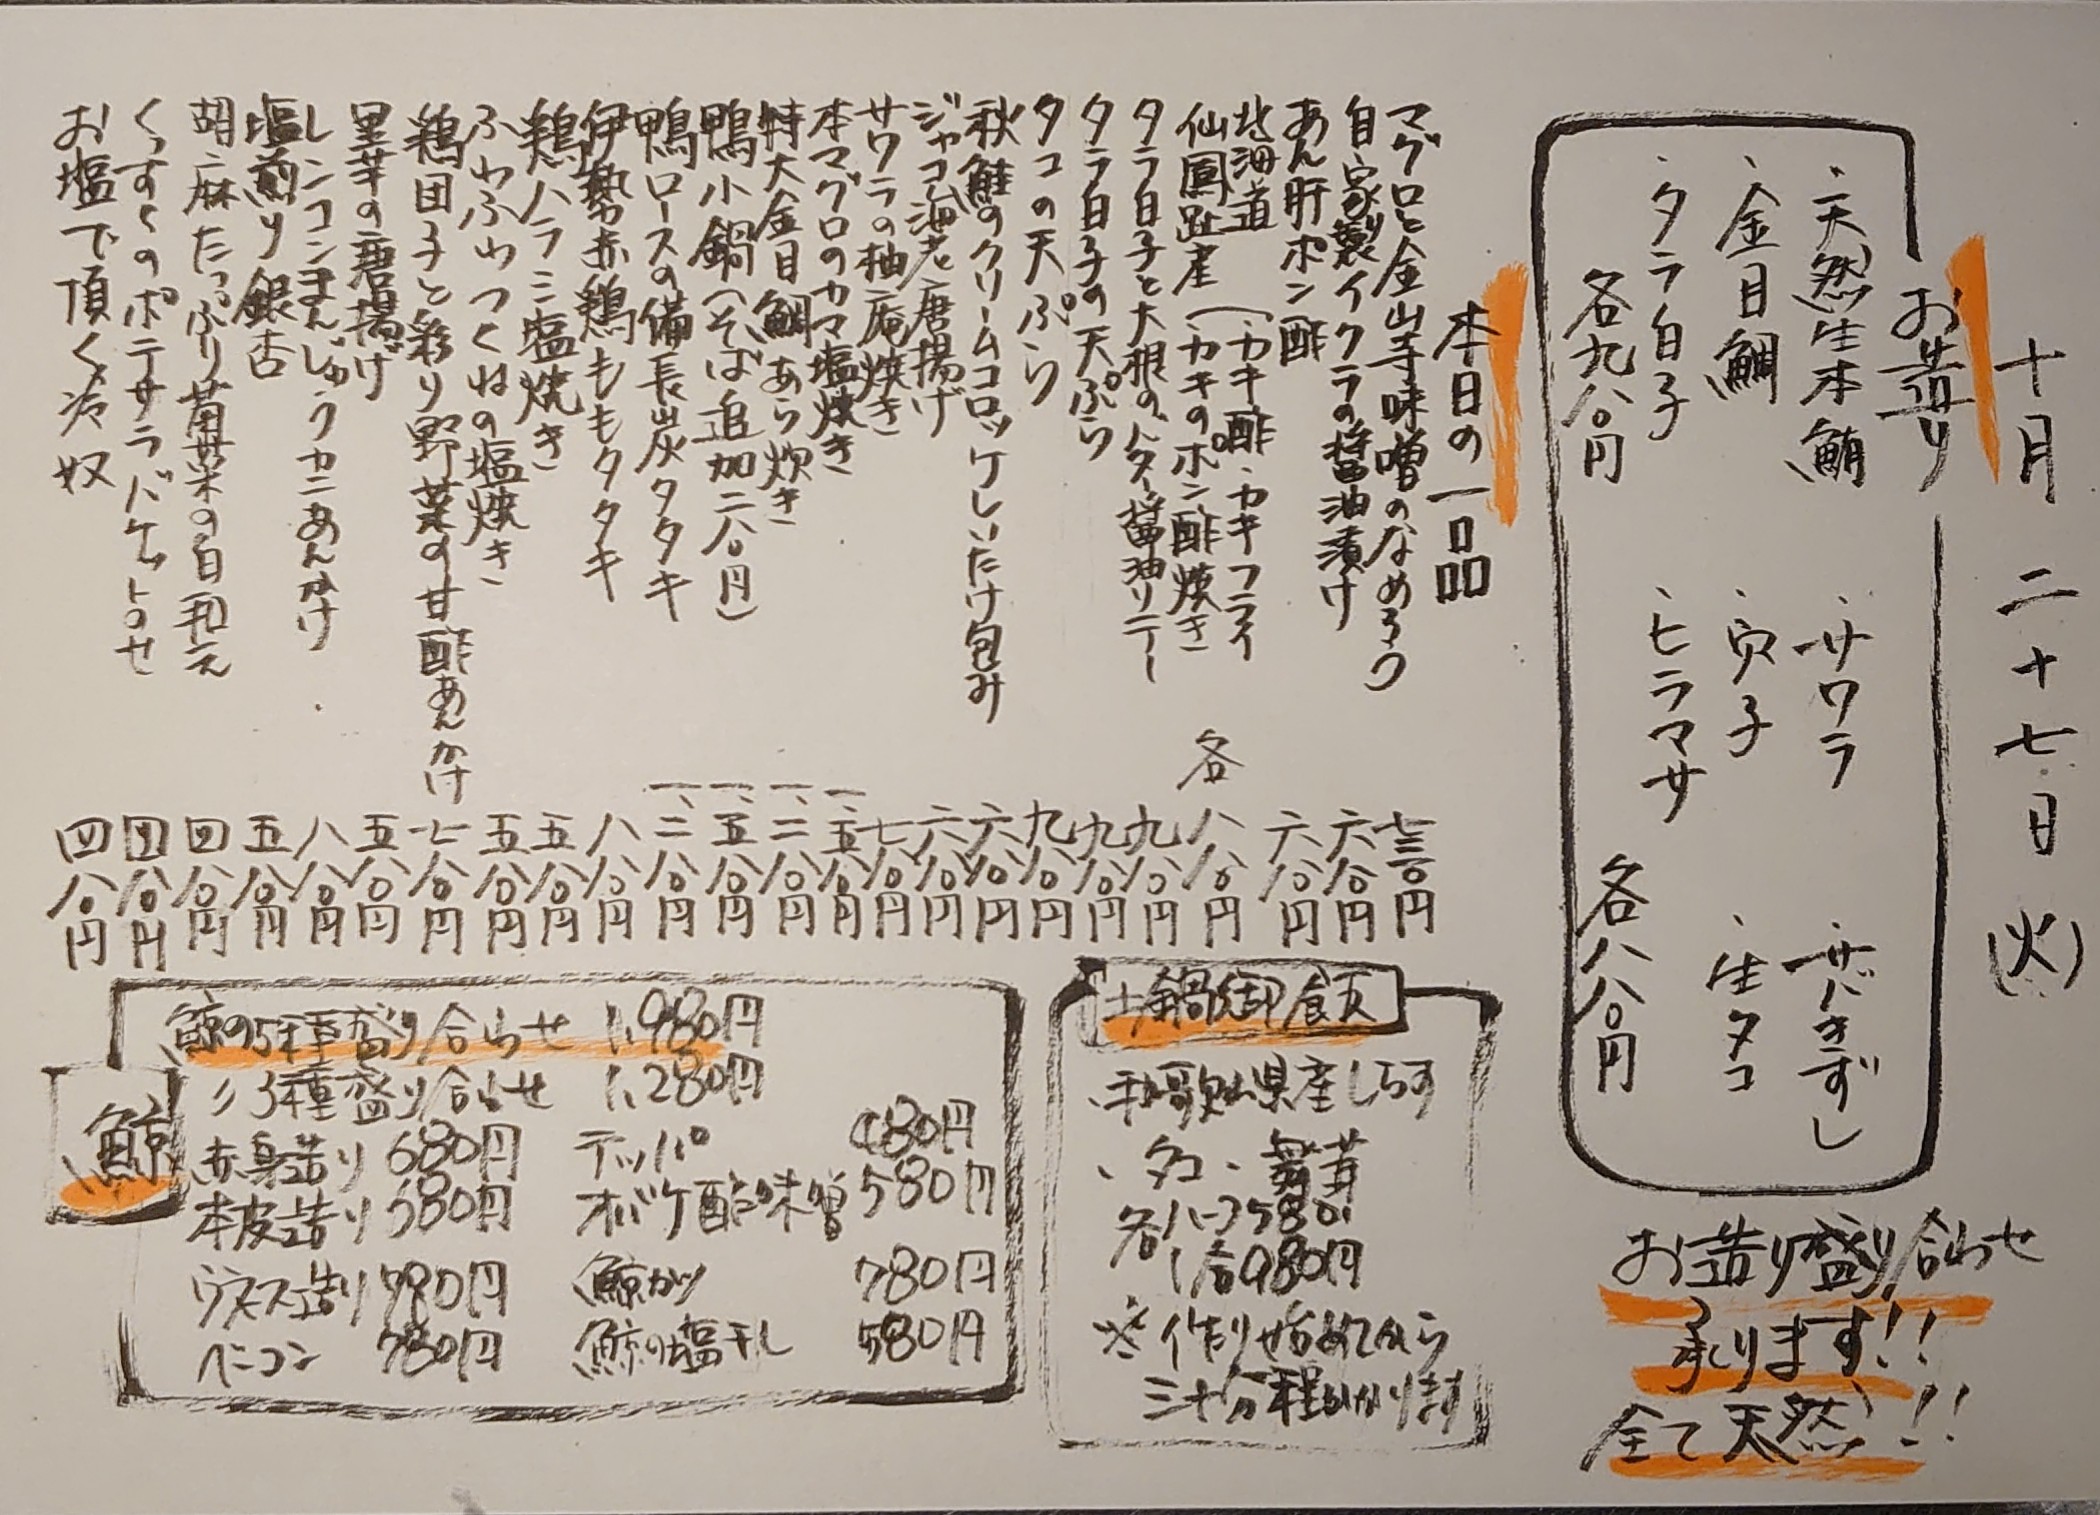 十月二十七日(火)
お造り
・天然生本鮪
・金目鯛
・タラ白子
各九八〇円
・サワラ
・穴子
・ヒラマサ
・サバきずし
・生タコ
各八八〇円
お造り盛り合わせ
承ります!!
全て天然!!
本日の一品
マグロと金山寺味噌のなめろう 七三〇円
自家製イクラの醤油漬け 六八〇円
あん肝ポン酢 六八〇円
北海道(カキ酢・カキフライ
仙鳳趾産(カキのポン酢焼き 各八八〇円
タラ白子と大根のバター醤油ソテー 九八〇円
タラ白子の天ぷら 九八〇円
タコの天ぷら 九八〇円
秋鮭のクリームコロッケしいたけ包み 六八〇円
ジャコ海老唐揚げ 六八〇円
サワラの柚庵焼き 七八〇円
本マグロのカマ塩焼き 一、五八〇円
特大金目鯛あら炊き 一、二八〇円
鴨小鍋(そば追加二八〇円) 一、五八〇円
鴨ロースの備長炭タタキ 一、二八〇円
伊勢赤鶏ももタタキ 八八〇円
鶏ハラミ塩焼き 五八〇円
ふわふわつくねの塩焼き 五八〇円
鶏団子と彩り野菜の甘酢あんかけ 七八〇円
里芋の唐揚げ 五八〇円
レンコンまんじゅうカニあんかけ 八八〇円
塩煎り銀杏 五八〇円
胡麻たっぷり菊菜の白和え 四八〇円
くずしのポテサラバケット乗せ 四八〇円
お塩で頂く冷奴 四八〇円
土鍋御飯
・和歌山県産しらす
・タコ・舞茸
各ハーフ580円
1合980円
※作り始めてから
三十分程かかります
鯨
鯨の5種盛り合わせ 1,980円
〃3種盛り合わせ 1,280円
赤身造り 680円
本皮造り 580円
ウネス造り 780円
ベーコン 780円
テッパ 480円
オバケ酢味噌 580円
鯨カツ 780円
鯨の塩干し 580円